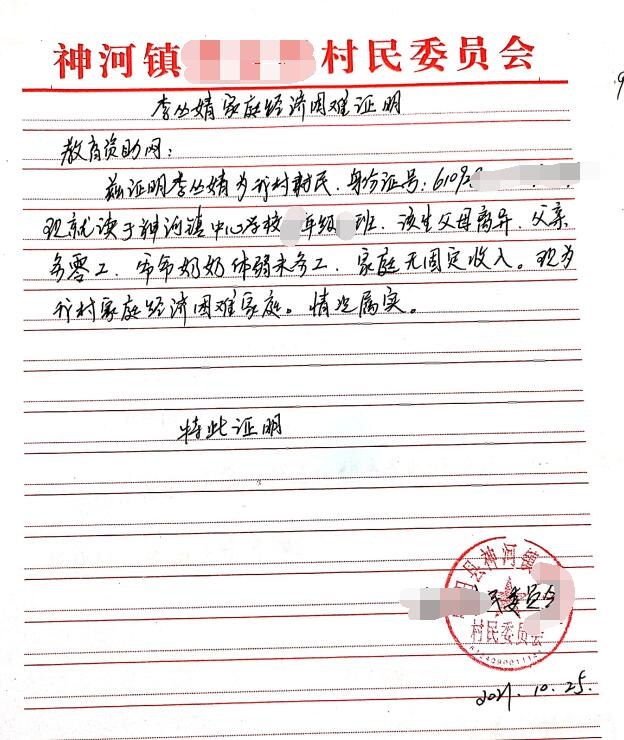 神河镇 村民委员会
李丛婧家庭经济困难证明
教育资助网：
兹证明李丛婧为我村村民，身份证号：6109
现就读于神河镇中心学校 年级 班，该生父母离异，父亲
务零工，爷爷奶奶体弱未务工，家庭无固定收入。现为
我村家庭经济困难家庭。情况属实。
特此证明
县神河镇
民委员会
村民委员会
2021.10.25.